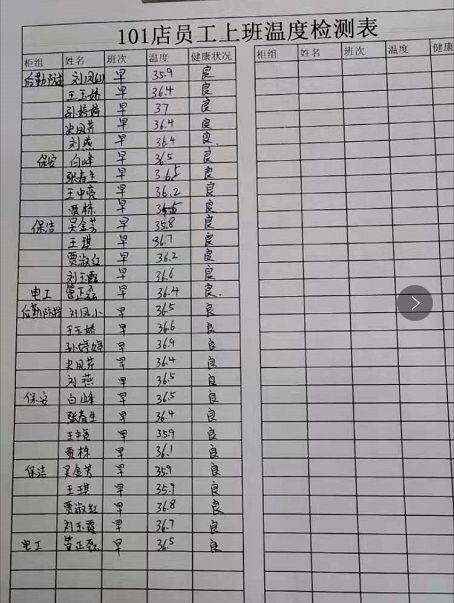 101店员工上班温度检测表
柜组 姓名 班次 温度 健康状况 柜组 姓名 班次 温度 健康
后勤防损 刘凤 早 35.9 良
王玉娇 早 36.4 良
孙婷婷 早 37 良
史凤芹 早 36.4 良
刘燕 早 36.4 良
保安 白峰 早 36.5 良
张春生 早 36.5 良
王中亮 早 36.2 良
贾栋 早 良
保洁 吴金芳 早 35.8 良
王琪 早 36.7 良
贾淑红 早 36.2 良
刘玉霞 早 36.6 良
电工 管正磊 早 36.4 良
后勤防损 刘凤小 早 36.5 良
王玉娇 早 36.6 良
孙婷婷 早 36.9 良
史凤芹 早 36.4 良
刘燕 早 36.5 良
保安 白峰 早 36.5 良
张春生 早 36.4 良
王中亮 早 35.9 良
贾栋 早 36.1 良
保洁 吴金芳 早 35.9 良
王琪 早 35.9 良
贾淑红 早 36.8 良
刘玉霞 早 36.7 良
电工 管正磊 早 36.5 良